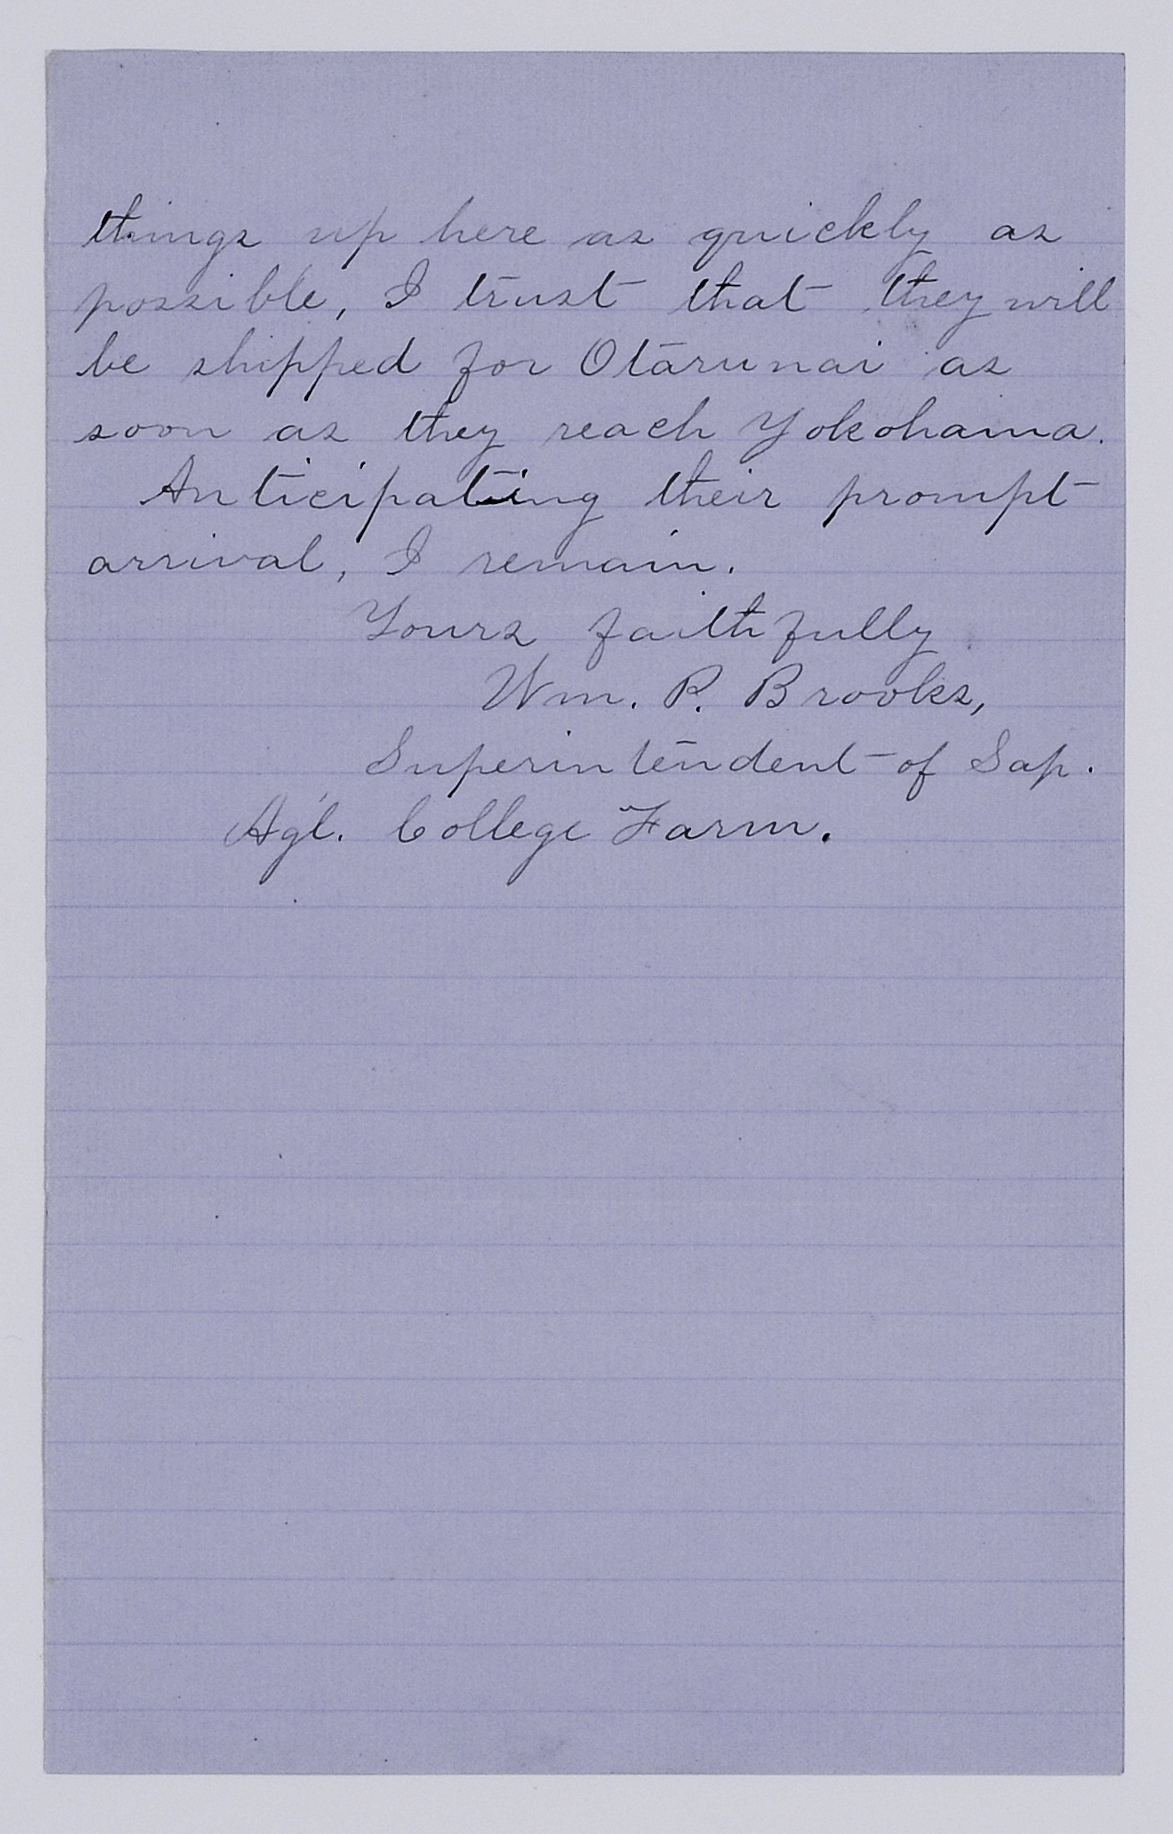 things up here as quickly as
possible, I trust that they will
be shipped for Otarunai as
soon as they reach Yokohama.
Anticipating their prompt
arrival, I remain.
Yours faithfully
Wm. P. Brooks,
Superintendent of Sap.
Ag'l. College Farm.